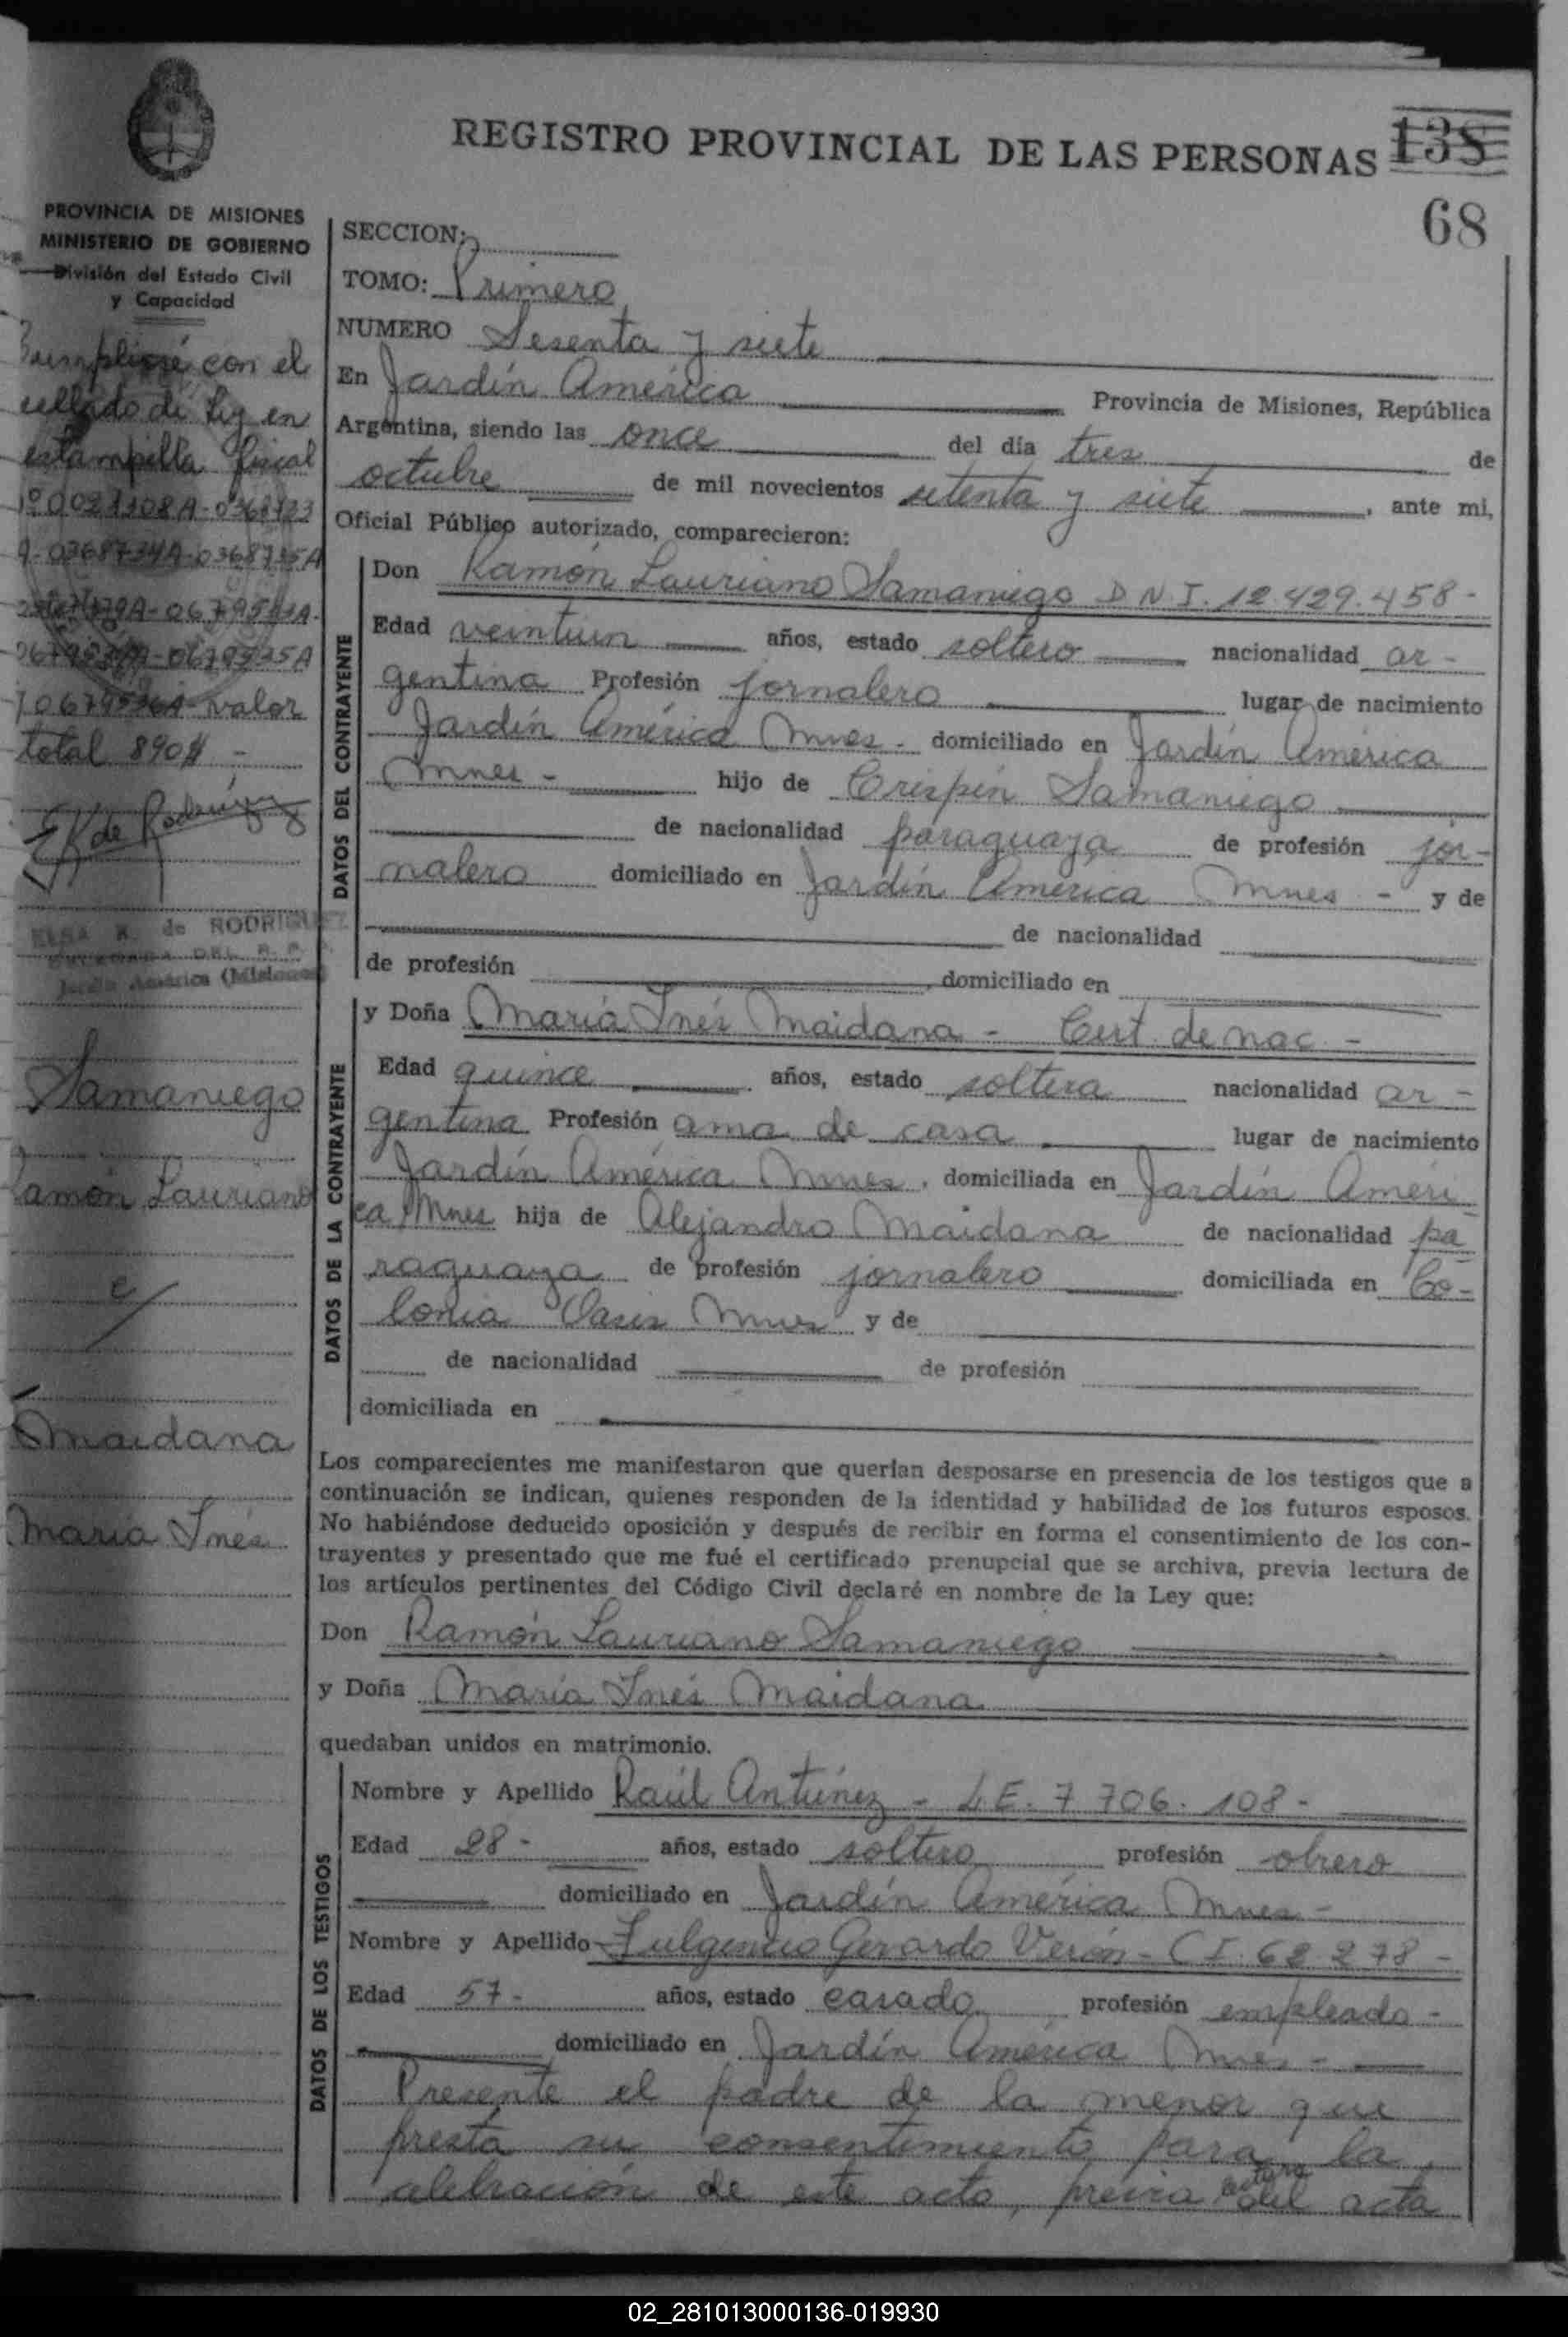 REGISTRO PROVINCIAL DE LAS PERSONAS 138
68
PROVINCIA DE MISIONES
MINISTERIO DE GOBIERNO
División del Estado Civil
y Capacidad
con el
sellado de Ley en
estampilla fiscal
valor
total 890$ -
E K de Rodriguez
ELSA K. de RODRIGUEZ
DEL R. P.
Jardín América (Misiones)
Samaniego
Ramón Lauriano
c/
Maidana
María Inés
SECCION:
TOMO: Primero
NUMERO Sesenta y siete
En Jardín América Provincia de Misiones, República
Argentina, siendo las once del día tres de
octubre de mil novecientos setenta y siete, ante mi,
Oficial Público autorizado, comparecieron:
DATOS DEL CONTRAYENTE
Don Ramón Lauriano Samaniego D.N.I. 12.429.458-
Edad veintiun años, estado soltero nacionalidad ar-
gentina Profesión jornalero lugar de nacimiento
Jardín América Mnes - domiciliado en Jardín América
Mnes - hijo de Crispín Samaniego
de nacionalidad paraguaya de profesión jor-
nalero domiciliado en Jardín América Mnes - y de
de nacionalidad
de profesión , domiciliado en
DATOS DE LA CONTRAYENTE
y Doña María Inés Maidana - Cert. de nac -
Edad quince años, estado soltera nacionalidad ar-
gentina Profesión ama de casa lugar de nacimiento
Jardín América Mnes, domiciliada en Jardín Améri
ca Mnes hija de Alejandro Maidana de nacionalidad pa
raguaya de profesión jornalero domiciliada en Co-
lonia Oasis Mnes y de
de nacionalidad de profesión
domiciliada en
Los comparecientes me manifestaron que querían desposarse en presencia de los testigos que a
continuación se indican, quienes responden de la identidad y habilidad de los futuros esposos.
No habiéndose deducido oposición y después de recibir en forma el consentimiento de los con-
trayentes y presentado que me fué el certificado prenupcial que se archiva, previa lectura de
los artículos pertinentes del Código Civil declaré en nombre de la Ley que:
Don Ramón Lauriano Samaniego
y Doña María Inés Maidana
quedaban unidos en matrimonio.
DATOS DE LOS TESTIGOS
Nombre y Apellido Raúl Antúnez - L.E. 7 706. 108-
Edad 28- años, estado soltero profesión obrero
domiciliado en Jardín América Mnes -
Nombre y Apellido Fulgencio Gerardo Verón - C I. 62 278 -
Edad 57- años, estado casado profesión empleado -
domiciliado en Jardín América Mnes -
Presente el padre de la menor que
presta su consentimiento para la
celebración de este acto, previa del acta
02_281013000136-019930